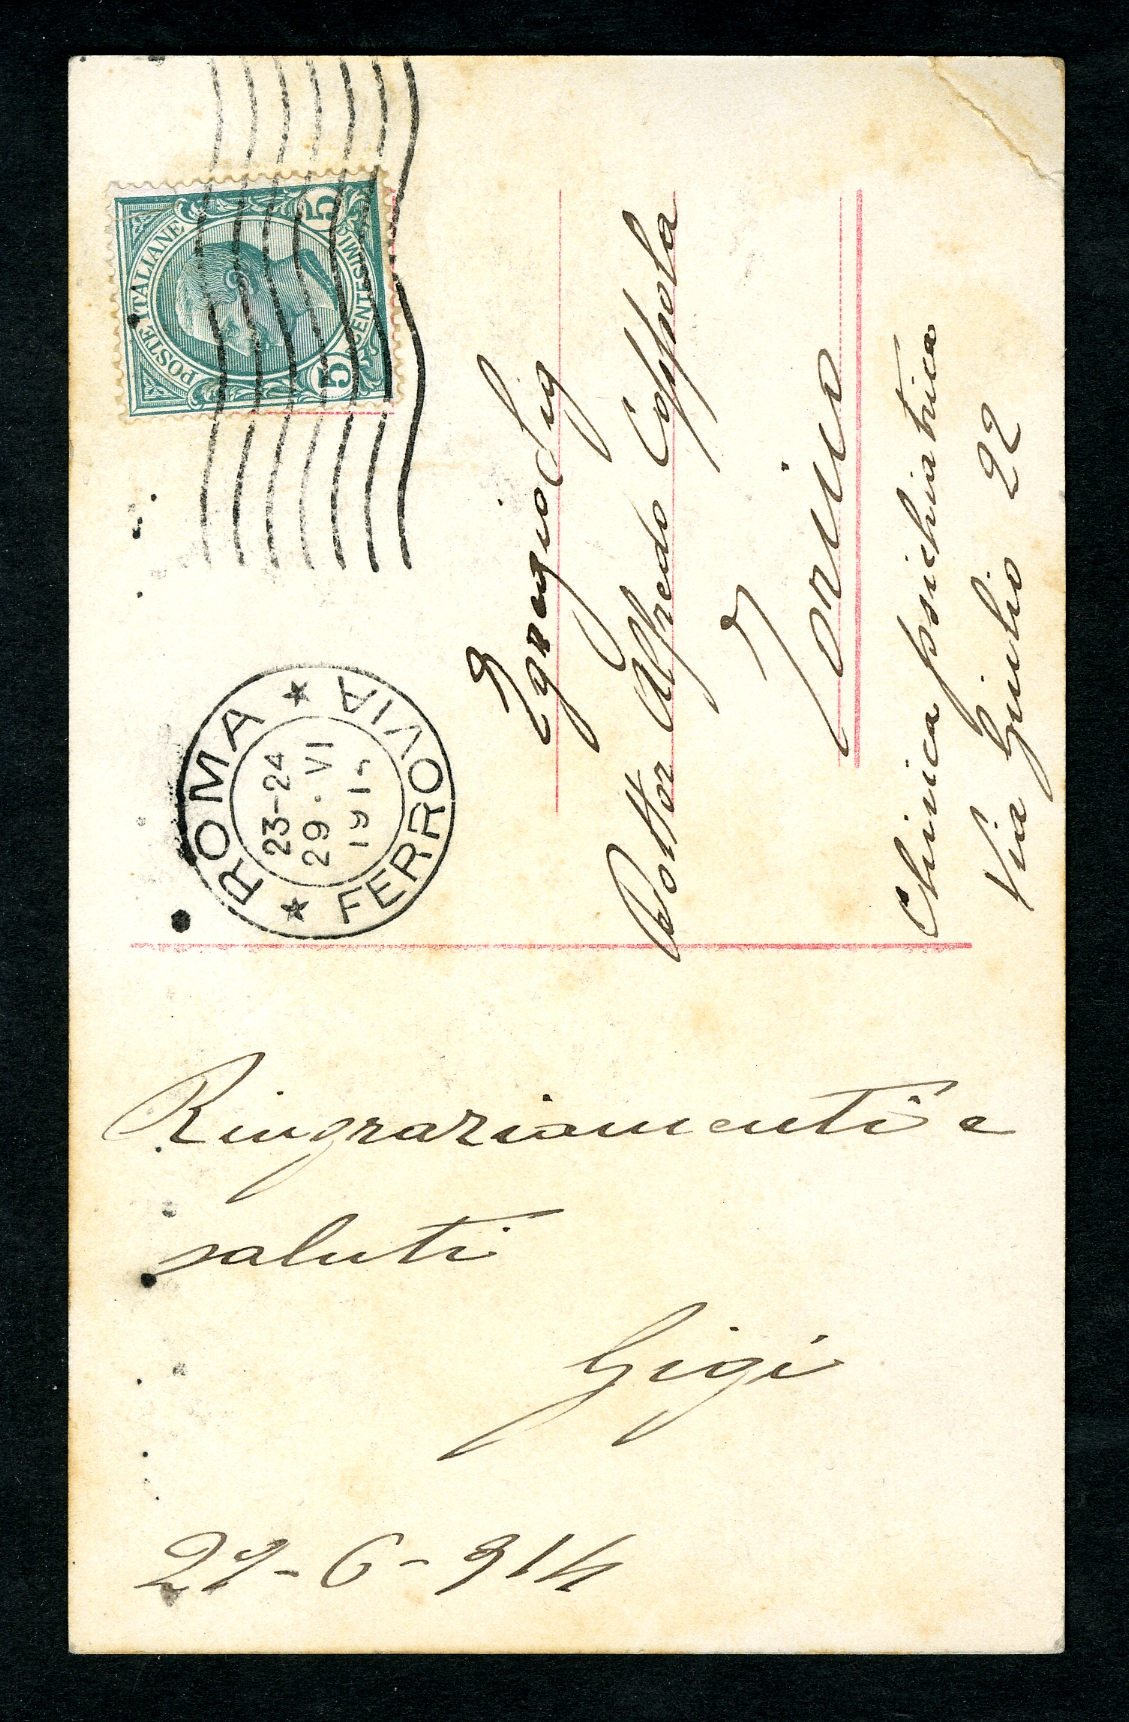 POSTE ITALIANE
5 CENTESIMI 5
ROMA
23-24
29 · VI
191
FERROVIA
Egregio Sig
Dottor Alfredo Coppola
Torino
Clinica psichiatrica
Via Giulio 22
Ringraziamenti e
saluti
Gigi
29-6-914